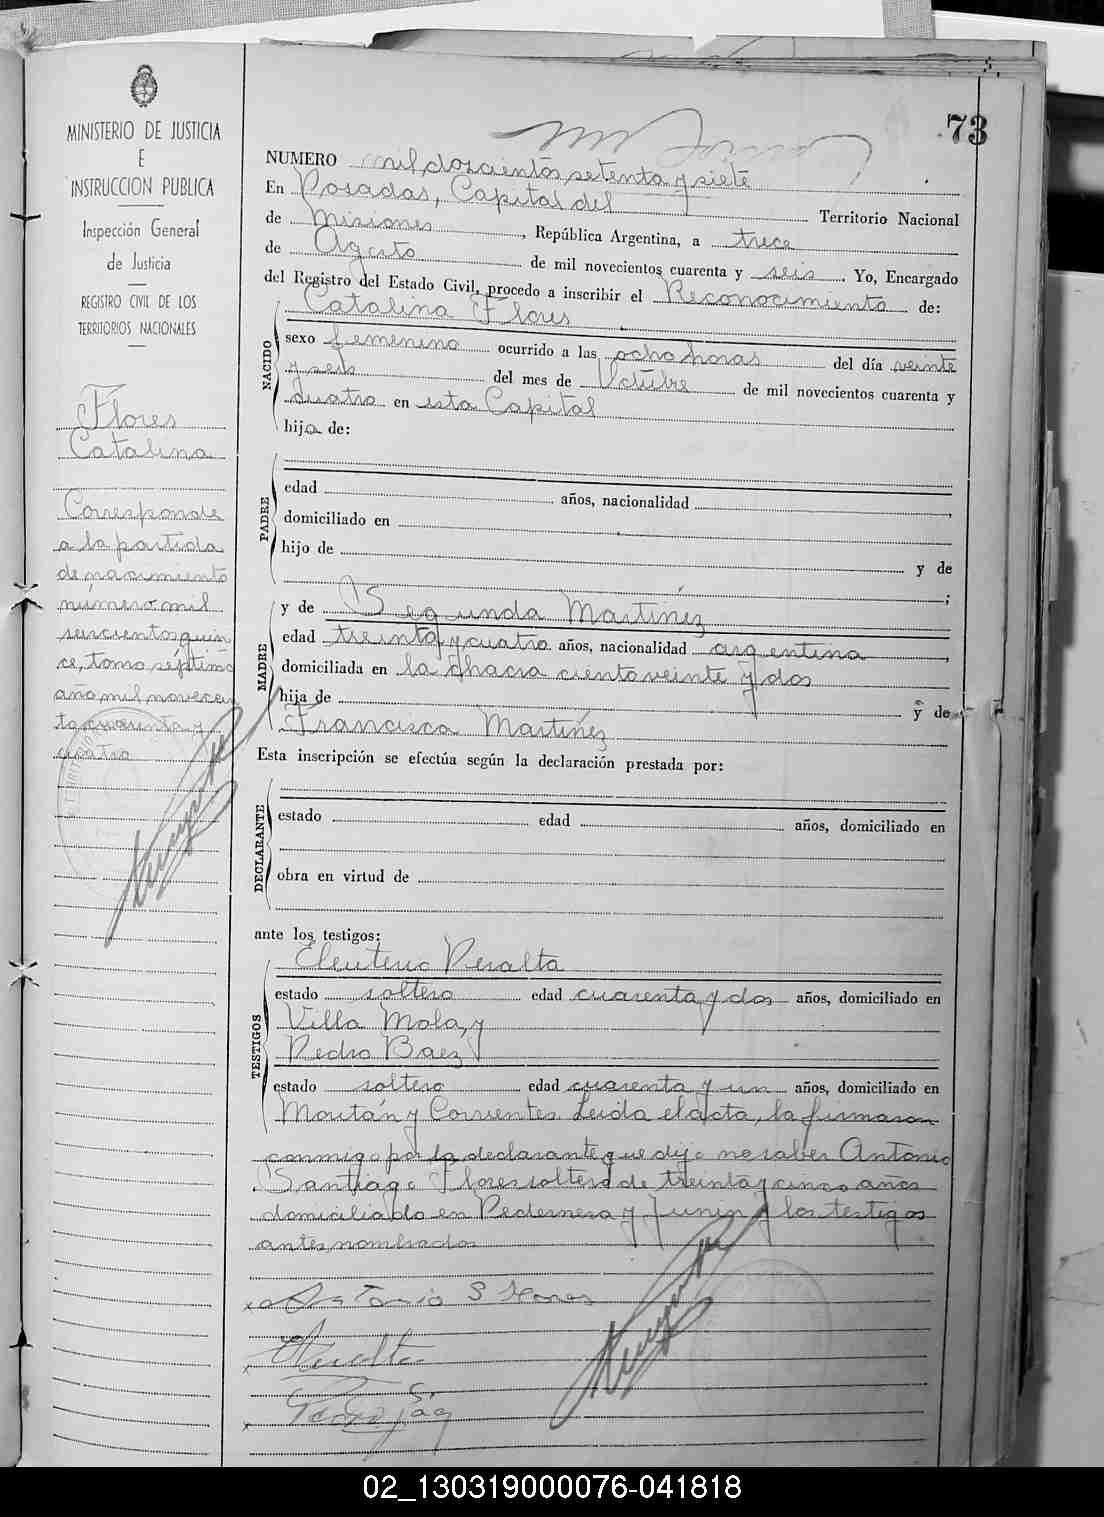 73
MINISTERIO DE JUSTICIA
E
INSTRUCCION PUBLICA
Inspección General
de Justicia
REGISTRO CIVIL DE LOS
TERRITORIOS NACIONALES
Flores
Catalina
Corresponde
a la partida
de nacimiento
número mil
seiscientos quin
ce, tomo séptimo
año mil novecien
to cuarenta y
cuatro
NUMERO mil doscientos setenta y siete
En Posadas, Capital del Territorio Nacional
de Misiones, República Argentina, a trece
de Agosto de mil novecientos cuarenta y seis. Yo, Encargado
del Registro del Estado Civil, procedo a inscribir el Reconocimiento de:
NACIDO
Catalina Flores
sexo femenino ocurrido a las ocho horas del día veinte
y seis del mes de Octubre de mil novecientos cuarenta y
cuatro en esta Capital
hija de:
PADRE
edad años, nacionalidad
domiciliado en
hijo de y de
;
MADRE
y de Segunda Martínez
edad treinta y cuatro años, nacionalidad argentina
domiciliada en la chacra ciento veinte y dos
hija de y de
Francisca Martínez
Esta inscripción se efectúa según la declaración prestada por:
DECLARANTE
estado edad años, domiciliado en
obra en virtud de
ante los testigos:
TESTIGOS
Eleuterio Peralta
estado soltero edad cuarenta y dos años, domiciliado en
Villa Mola, y
Pedro Baez
estado soltero edad cuarenta y un años, domiciliado en
Moritán y Corrientes Leída el acta, la firmaron
conmigo por la declarante que dijo no saber Antonio
Santiago Flores soltero de treinta y cinco años
domiciliado en Pedernera y Junin y los testigos
antes nombrados
Antonio S Flores
02_130319000076-041818